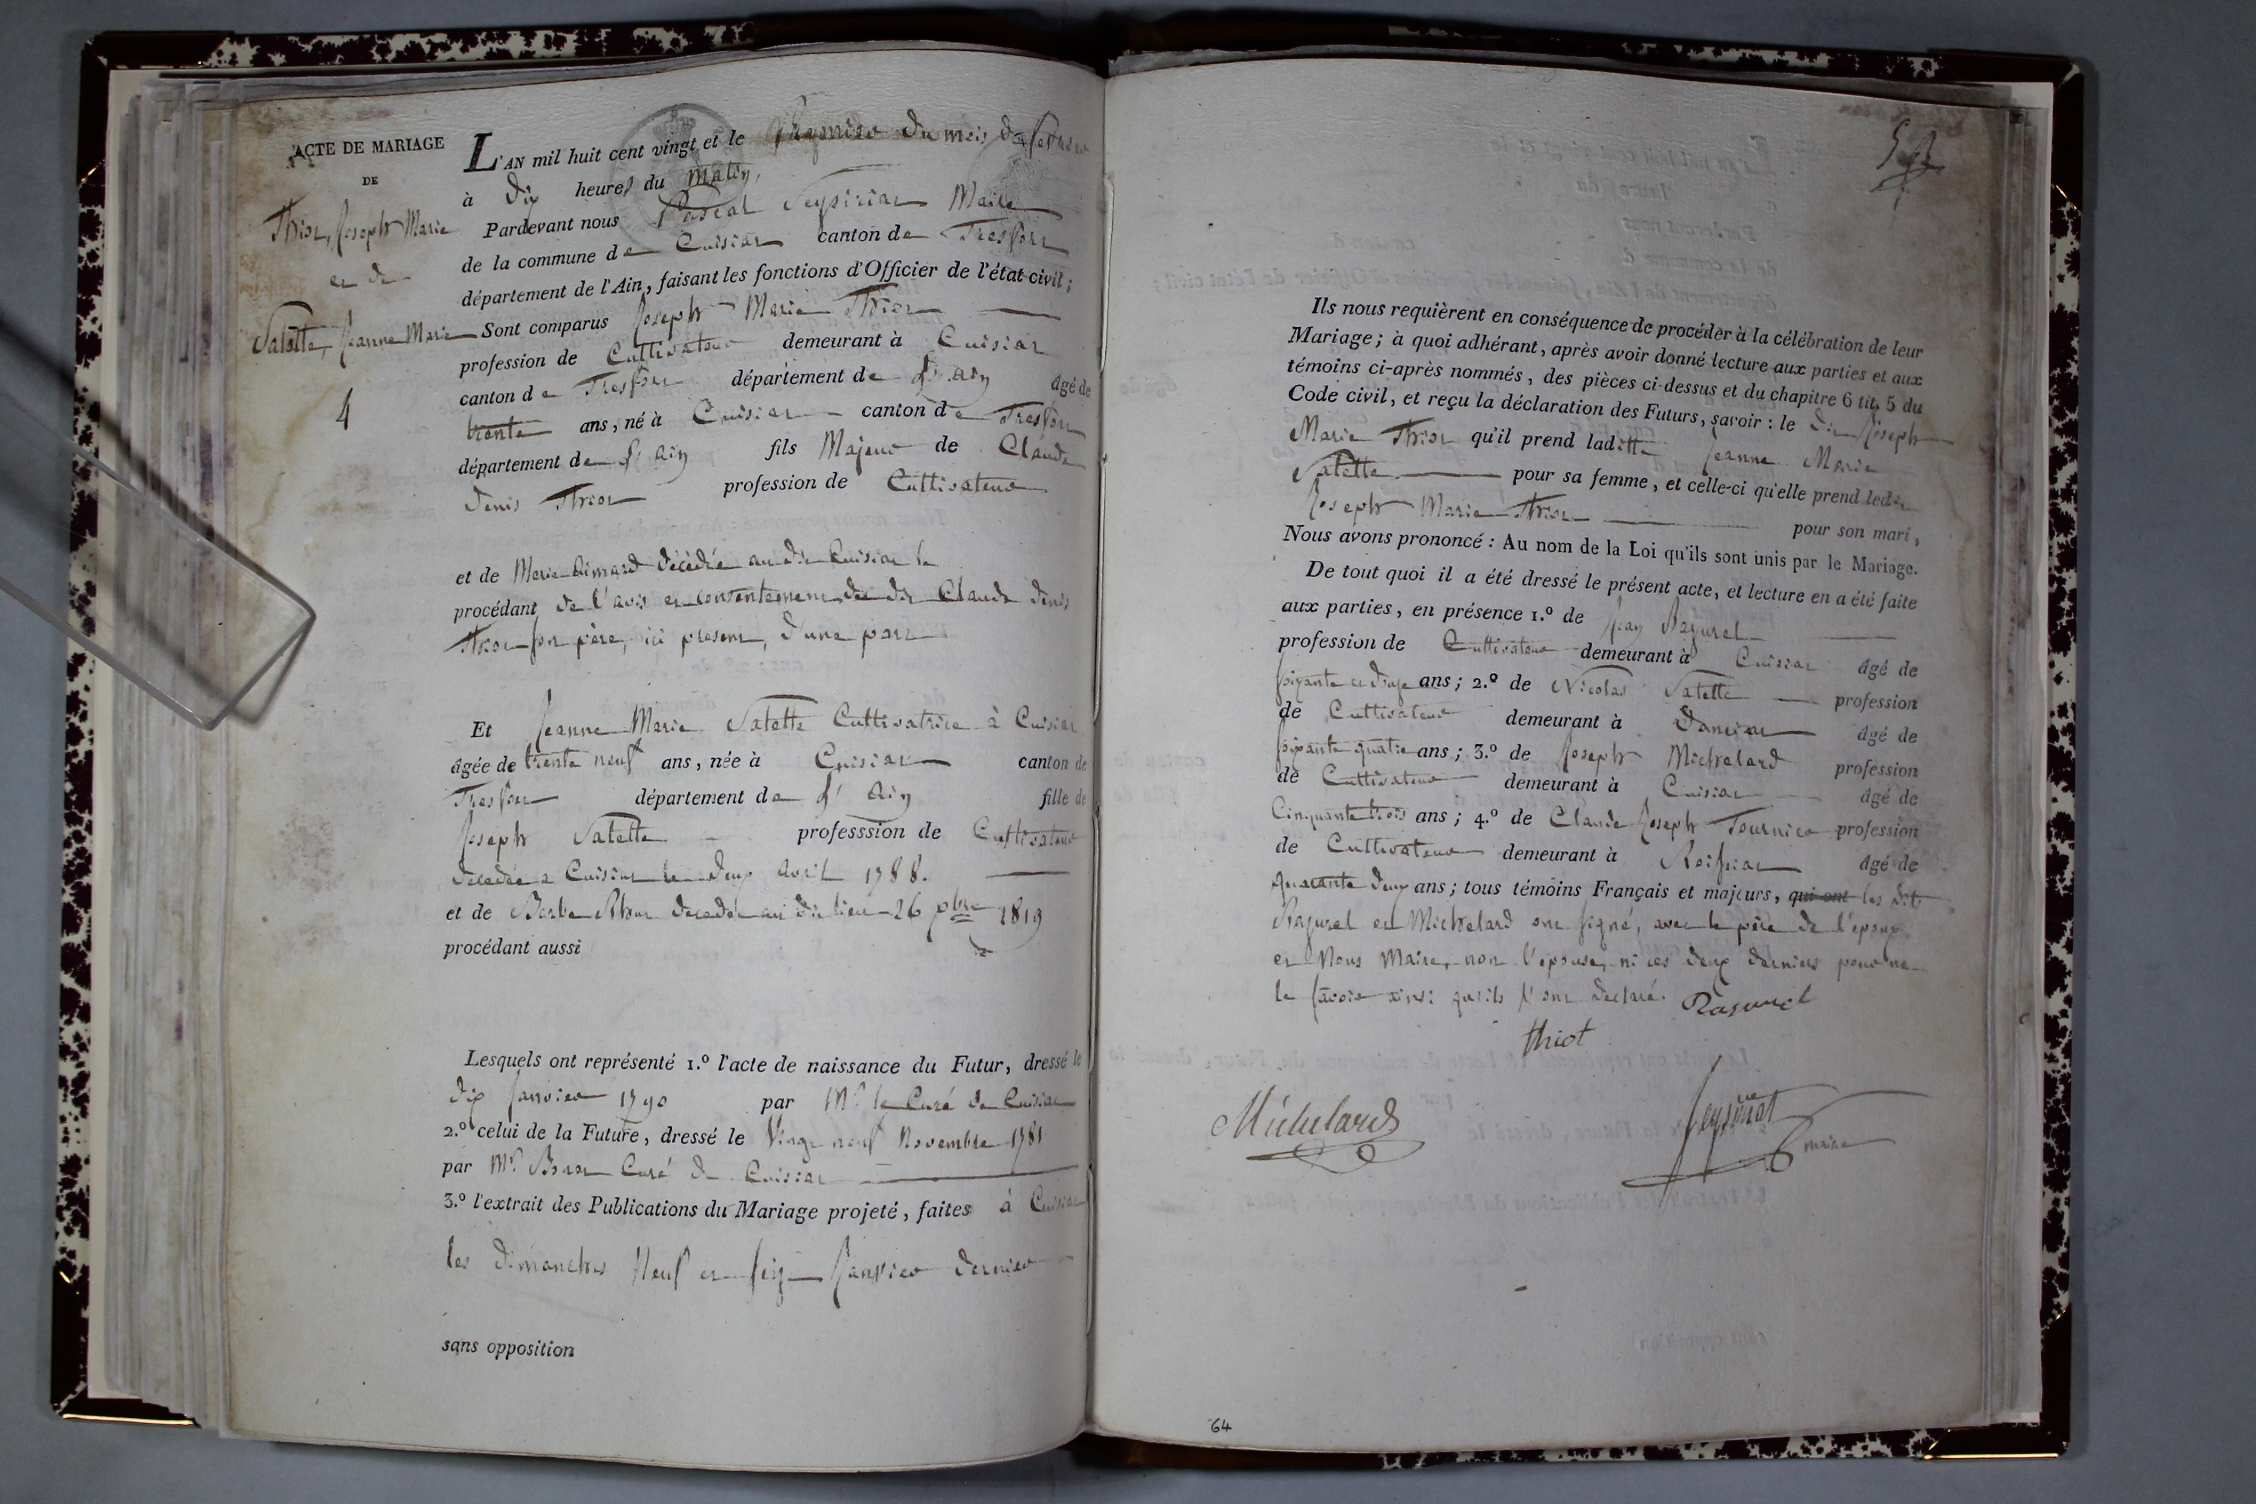 ACTE DE MARIAGE
DE
Thiot, Joseph Marie
et de
Salette, Jeanne Marie
4
L'AN mil huit cent vingt et le premier du mois de fevrier
à dix heures du matin,
Pardevant nous Pascal Maire
de la commune de Cuisiat canton de Treffort
département de l'Ain, faisant les fonctions d'Officier de l'état civil;
Sont comparus Joseph Marie Thiot
profession de Cultivateur demeurant à Cuisiat
canton de Treffort département de l'Ain âgé de
trente ans, né à Cuisiat canton de Treffort
département de l'Ain fils Majeur de Claude
denis Thiot profession de Cultivateur
et de Marie décédée au dit Cuisiat le
procédant de l'avis et consentement du dit Claude denis
Thiot son père, ici present, d'une part
Et Jeanne Marie Salette Cultivatrice à Cuisiat
âgée de trente neuf ans, née à Cuisiat canton de
Treffort département de l'Ain fille de
Joseph Salette professsion de Cultivateur
décédé à Cuisiat le deux avril 1788.
et de Barbe décédée au dit lieu 26 1819
procédant aussi de
Lesquels ont représenté 1.º l'acte de naissance du Futur, dressé le
dix Janvier 1790 par Mr le Curé de Cuisiat
2.º celui de la Future, dressé le Vingt neuf Novembre 1781
par Mr Curé de Cuisiat
3.º l'extrait des Publications du Mariage projeté, faites à Cuisiat
les dimanches Neuf et seize Janvier dernier
sans opposition
Ils nous requièrent en conséquence de procéder à la célébration de leur
Mariage; à quoi adhérant, après avoir donné lecture aux parties et aux
témoins ci-après nommés, des pièces ci-dessus et du chapitre 6 tit. 5 du
Code civil, et reçu la déclaration des Futurs, savoir: le dit Joseph
Marie Thiot qu'il prend laditte Jeanne Marie
Salette pour sa femme, et celle-ci qu'elle prend ledit
Joseph Marie Thiot pour son mari,
Nous avons prononcé: Au nom de la Loi qu'ils sont unis par le Mariage.
De tout quoi il a été dressé le présent acte, et lecture en a été faite
aux parties, en présence 1.º de Jean Razurel
profession de Cultivateur demeurant à Cuisiat âgé de
soixante et ans; 2.º de Nicolas Salette profession
de Cultivateur demeurant à âgé de
soixante quatre ans; 3.º de Joseph Michelard profession
de Cultivateur demeurant à Cuisiat âgé de
Cinquante trois ans; 4.º de Claude Joseph Tournier profession
de Cultivateur demeurant à Roissiat âgé de
quarante deux ans; tous témoins Français et majeurs, qui ont les dits
Razurel et Michelard ont signé, avec le père de l'époux
et Nous Maire, non l'épouse, ni les deux derniers pour ne
le savoir ainsi qu'ils l'ont déclaré. Razurel
thiot
Michelard
maire
64